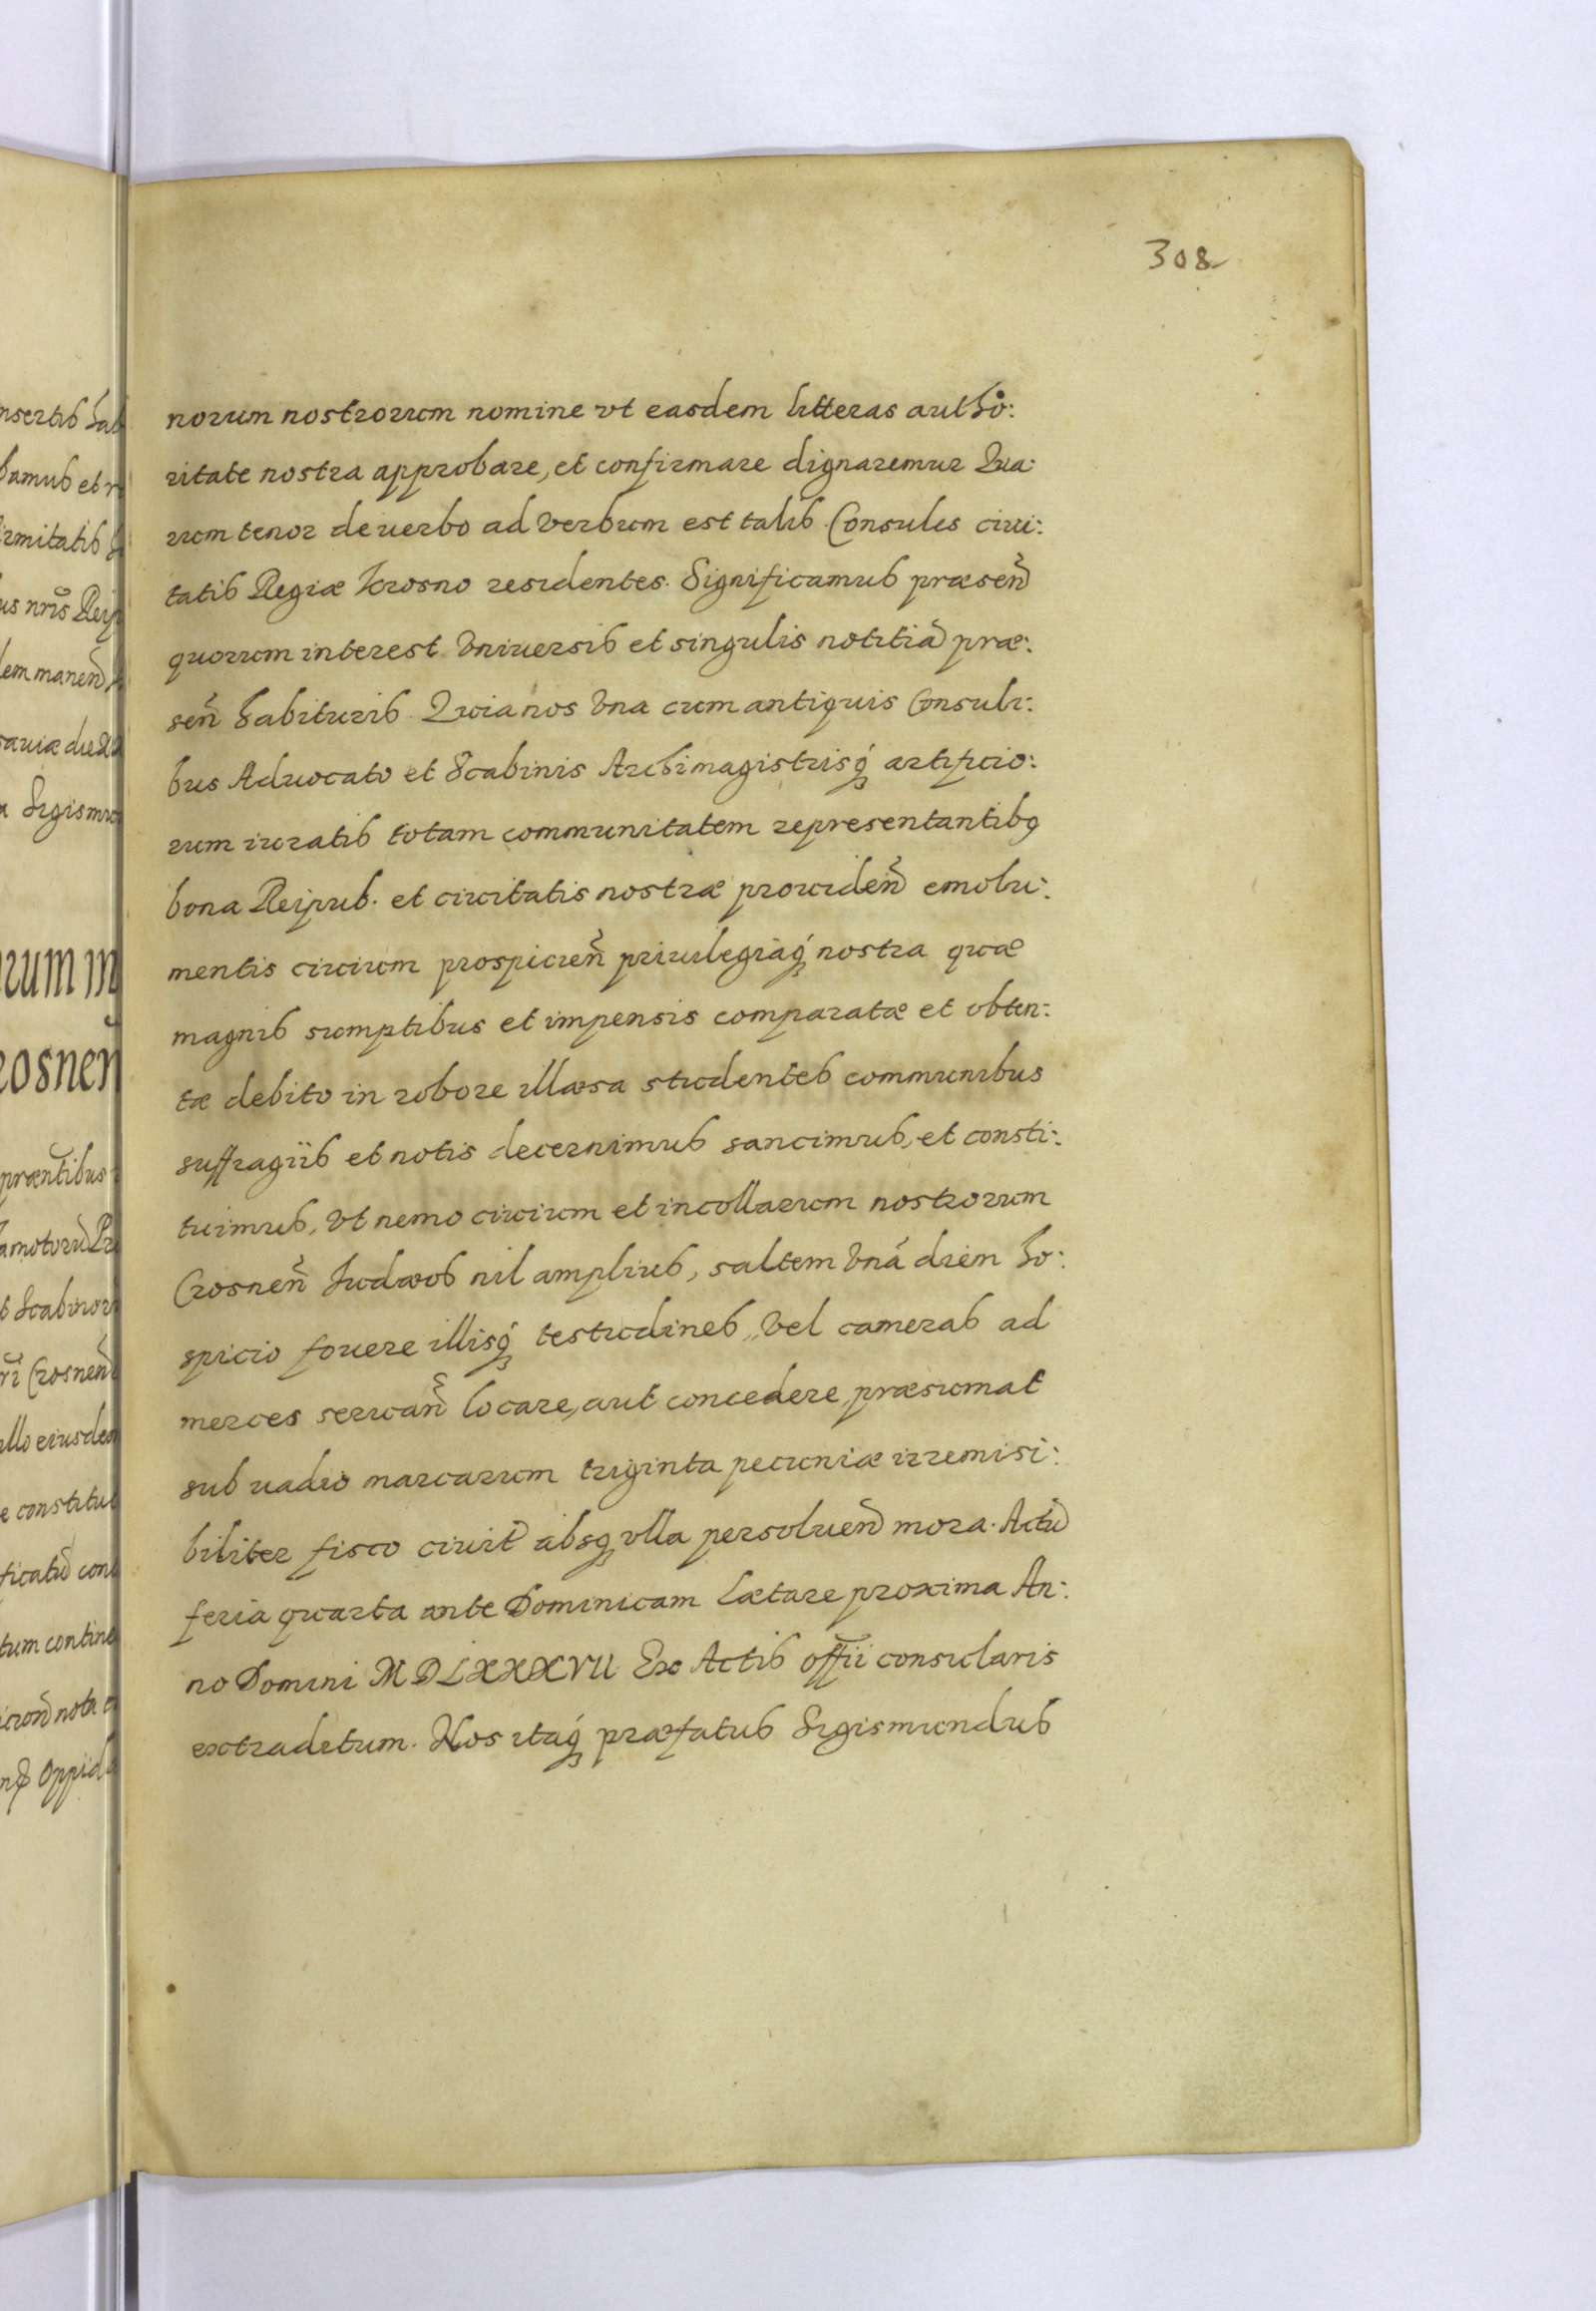 308
norum nostrorum nomine vt easdem litteras autho:
ritate nostra approbare, et confirmare dignaremur Qua:
rum tenor de uerbo ad verbum est talis Consules ciui:
tatis Regiæ Krosno residentes. Significamus præsen̄
quorum interest vniuersis et singulis notitiā præ:
sen̄ habituris. Quia nos vna cum antiquis Consuli:
bus Aduocato et Scabinis Archimagistrisq́ꝫ artificio:
rum iuratis totam communitatem representantibꝫ
bona Reipub. et ciuitatis nostræ prouiden̄ emolu:
mentis ciuium prospicien̄ priuilegiaq́ꝫ nostra quæ
magnis sumptibus et impensis comparatæ et obten:
tæ debito in robore illæsa studentes communibus
suffragiis et notis decernimus sancimus, et consti:
tuimus, vt nemo ciuium et incollarum nostrorum
Crosnen̄ Iudæos nil amplius, saltem vnā diem ho:
spicio fouere illisq́ꝫ testudines, vel cameras ad
merces seruan̄ locare, aut concedere præsumat
sub uadio marcarum triginta pecuniæ irremisi:
biliter fisco ciuit̄ absqꝫ vlla persoluen̄ mora. Actū
feria quarta ante Dominicam Lætare proxima An:
no Domini MDLXXXVII. Ex Actis offīi consularis
extraditum. Nos itaq́ꝫ præfatus Sigismundus